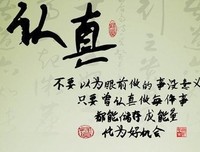 认真
不要以为眼前做的事没意义
只要曾认真做每件事
都能储存成能量
化为好机会